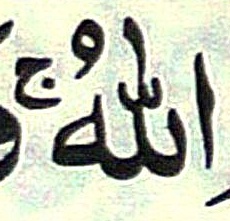 اللّٰهُ ۚ